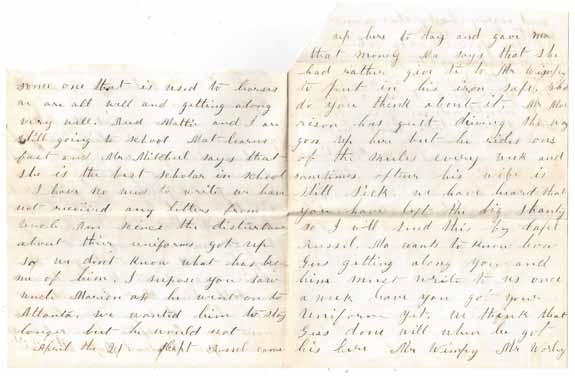 some one that is used to horses
we are all well and getting along
very well. Aud Mattie and I are
still going to school Mat learns
fast and Mr Mitchel says that
she is the best scholar in school
I have no news to write we have
not received any letters from
uncle Am since the disturbance
about their uniforms got up
so we dont know what has beco
me of him. I supose you saw
uncle Marion as he went on to
Atlanta, we wanted him to stay
longer but he would not
April the 21 Capt Russel came
up here to day and gave me
that money Ma says that she
had rather give it to Mr Wimpy
to put in his iron safe, what
do you think about it. Mr Mor
rison has quit driving the wag
gon up here but he rides one
of the mules every week and
sometimes oftner his wife is
still sick. we have heard that
you have left the big Shanty
so I will send this by Capt
Russel. Ma wants to know how
Gus getting along you and
him must write to us once
a week have you got your
uniform yet. We think that
Gus done well when he got
his here Mr Wimpy Mr Worly